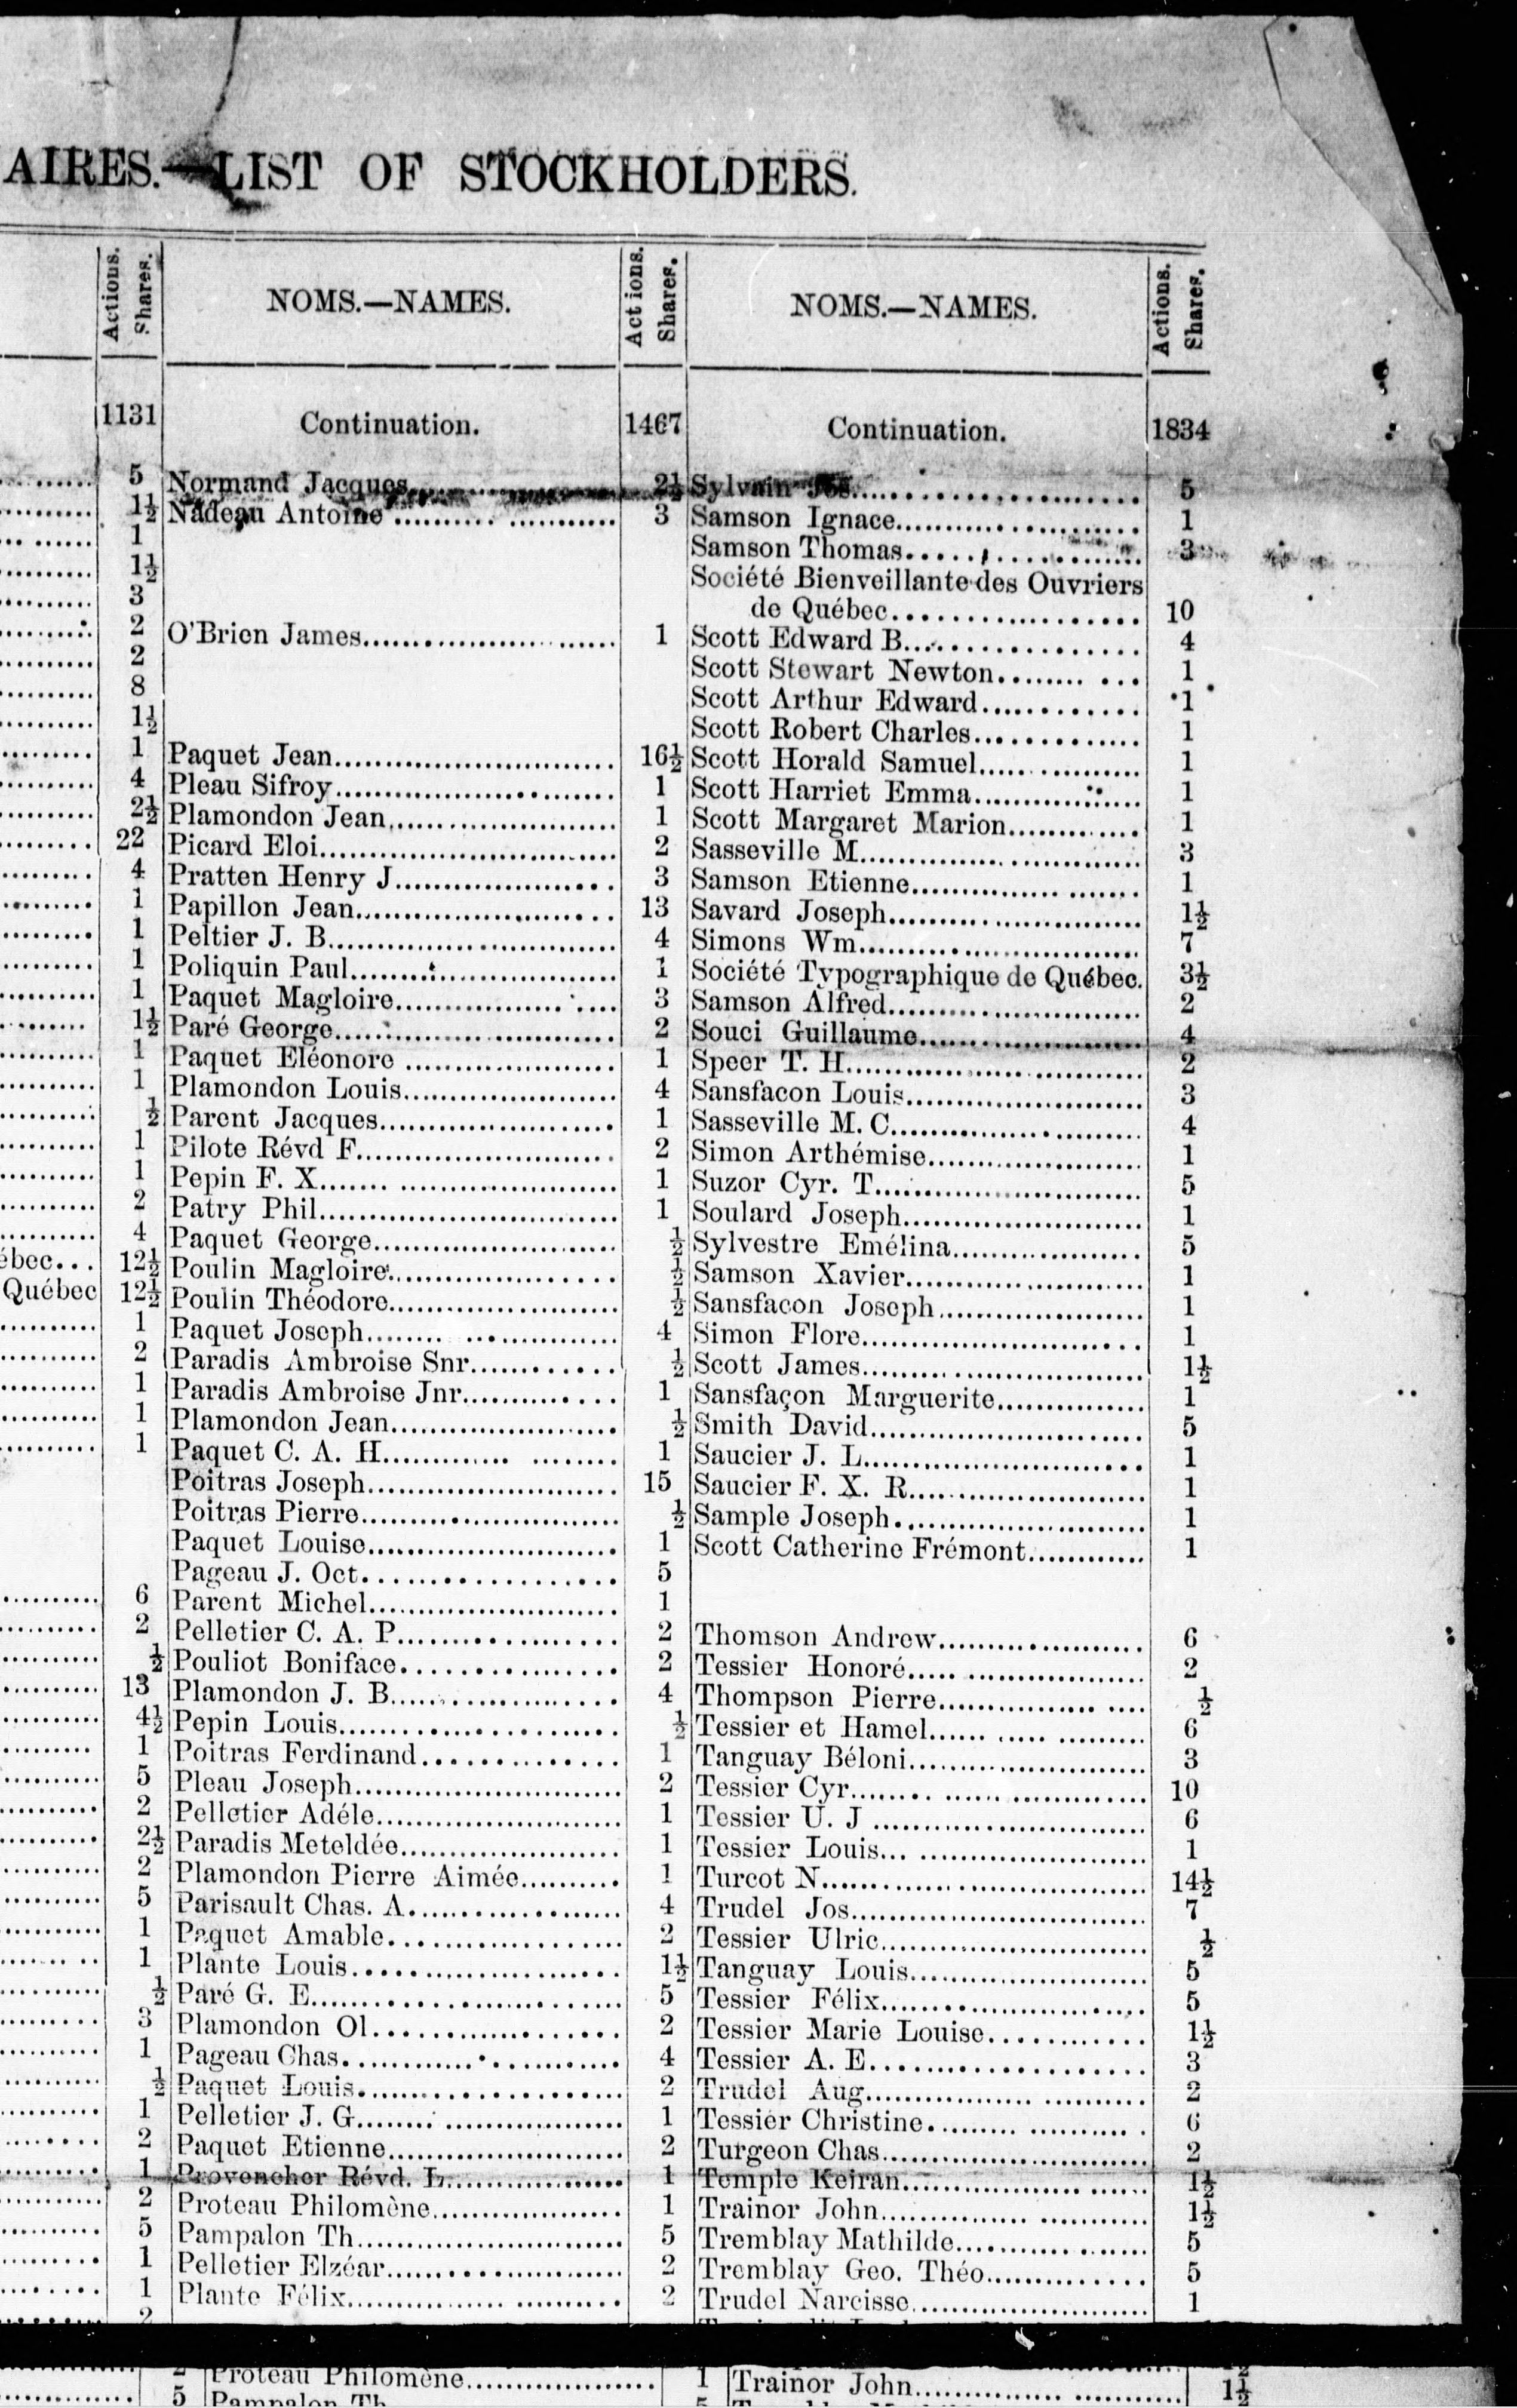 AIRES.—LIST OF STOCKHOLDERS.
Actions. Shares.
1131
5
1½
1
1½
3
2
2
8
1½
1
4
2½
22
4
1
1
1
1
1½
1
1
½
1
1
2
4
ébec... 12½
Québec 12½
1
2
1
1
1
6
2
½
13
4½
1
5
2
2½
2
5
1
1
½
3
1
½
1
2
1
2
5
1
1
2
NOMS.—NAMES. Actions. Shares.
Continuation. 1467
Normand Jacques 2½
Nadeau Antoine 3
O'Brien James 1
Paquet Jean 16½
Pleau Sifroy 1
Plamondon Jean 1
Picard Eloi 2
Pratten Henry J 3
Papillon Jean 13
Peltier J. B 4
Poliquin Paul 1
Paquet Magloire 3
Paré George 2
Paquet Eléonore 1
Plamondon Louis 4
Parent Jacques 1
Pilote Révd F 2
Pepin F. X 1
Patry Phil 1
Paquet George ½
Poulin Magloire ½
Poulin Théodore ½
Paquet Joseph 4
Paradis Ambroise Snr ½
Paradis Ambroise Jnr 1
Plamondon Jean ½
Paquet C. A. H 1
Poitras Joseph 15
Poitras Pierre ½
Paquet Louise 1
Pageau J. Oct 5
Parent Michel 1
Pelletier C. A. P 2
Pouliot Boniface 2
Plamondon J. B 4
Pepin Louis ½
Poitras Ferdinand 1
Pleau Joseph 2
Pelletier Adéle 1
Paradis Meteldée 1
Plamondon Pierre Aimée 1
Parisault Chas. A 4
Paquet Amable 2
Plante Louis 1½
Paré G. E 5
Plamondon Ol 2
Pageau Chas 4
Paquet Louis 2
Pelletier J. G 1
Paquet Etienne 2
Provencher Révd. L 1
Proteau Philomène 1
Pampalon Th 5
Pelletier Elzéar 2
Plante Félix 2
NOMS.—NAMES. Actions. Shares.
Continuation. 1834
Sylvain Jos 5
Samson Ignace 1
Samson Thomas 3
Société Bienveillante des Ouvriers
de Québec 10
Scott Edward B 4
Scott Stewart Newton 1
Scott Arthur Edward 1
Scott Robert Charles 1
Scott Horald Samuel 1
Scott Harriet Emma 1
Scott Margaret Marion 1
Sasseville M 3
Samson Etienne 1
Savard Joseph 1½
Simons Wm 7
Société Typographique de Québec. 3½
Samson Alfred 2
Souci Guillaume 4
Speer T. H 2
Sansfacon Louis 3
Sasseville M. C 4
Simon Arthémise 1
Suzor Cyr. T 5
Soulard Joseph 1
Sylvestre Emélina 5
Samson Xavier 1
Sansfacon Joseph 1
Simon Flore 1
Scott James 1½
Sansfaçon Marguerite 1
Smith David 5
Saucier J. L 1
Saucier F. X. R 1
Sample Joseph 1
Scott Catherine Frémont 1
Thomson Andrew 6
Tessier Honoré 2
Thompson Pierre ½
Tessier et Hamel 6
Tanguay Béloni 3
Tessier Cyr 10
Tessier U. J 6
Tessier Louis 1
Turcot N 14½
Trudel Jos 7
Tessier Ulric ½
Tanguay Louis 5
Tessier Félix 5
Tessier Marie Louise 1½
Tessier A. E 3
Trudel Aug 2
Tessier Christine 6
Turgeon Chas 2
Temple Keiran 1½
Trainor John 1½
Tremblay Mathilde 5
Tremblay Geo. Théo 5
Trudel Narcisse 1
2 Proteau Philomène 1 Trainor John 1½
5 Pampalon Th